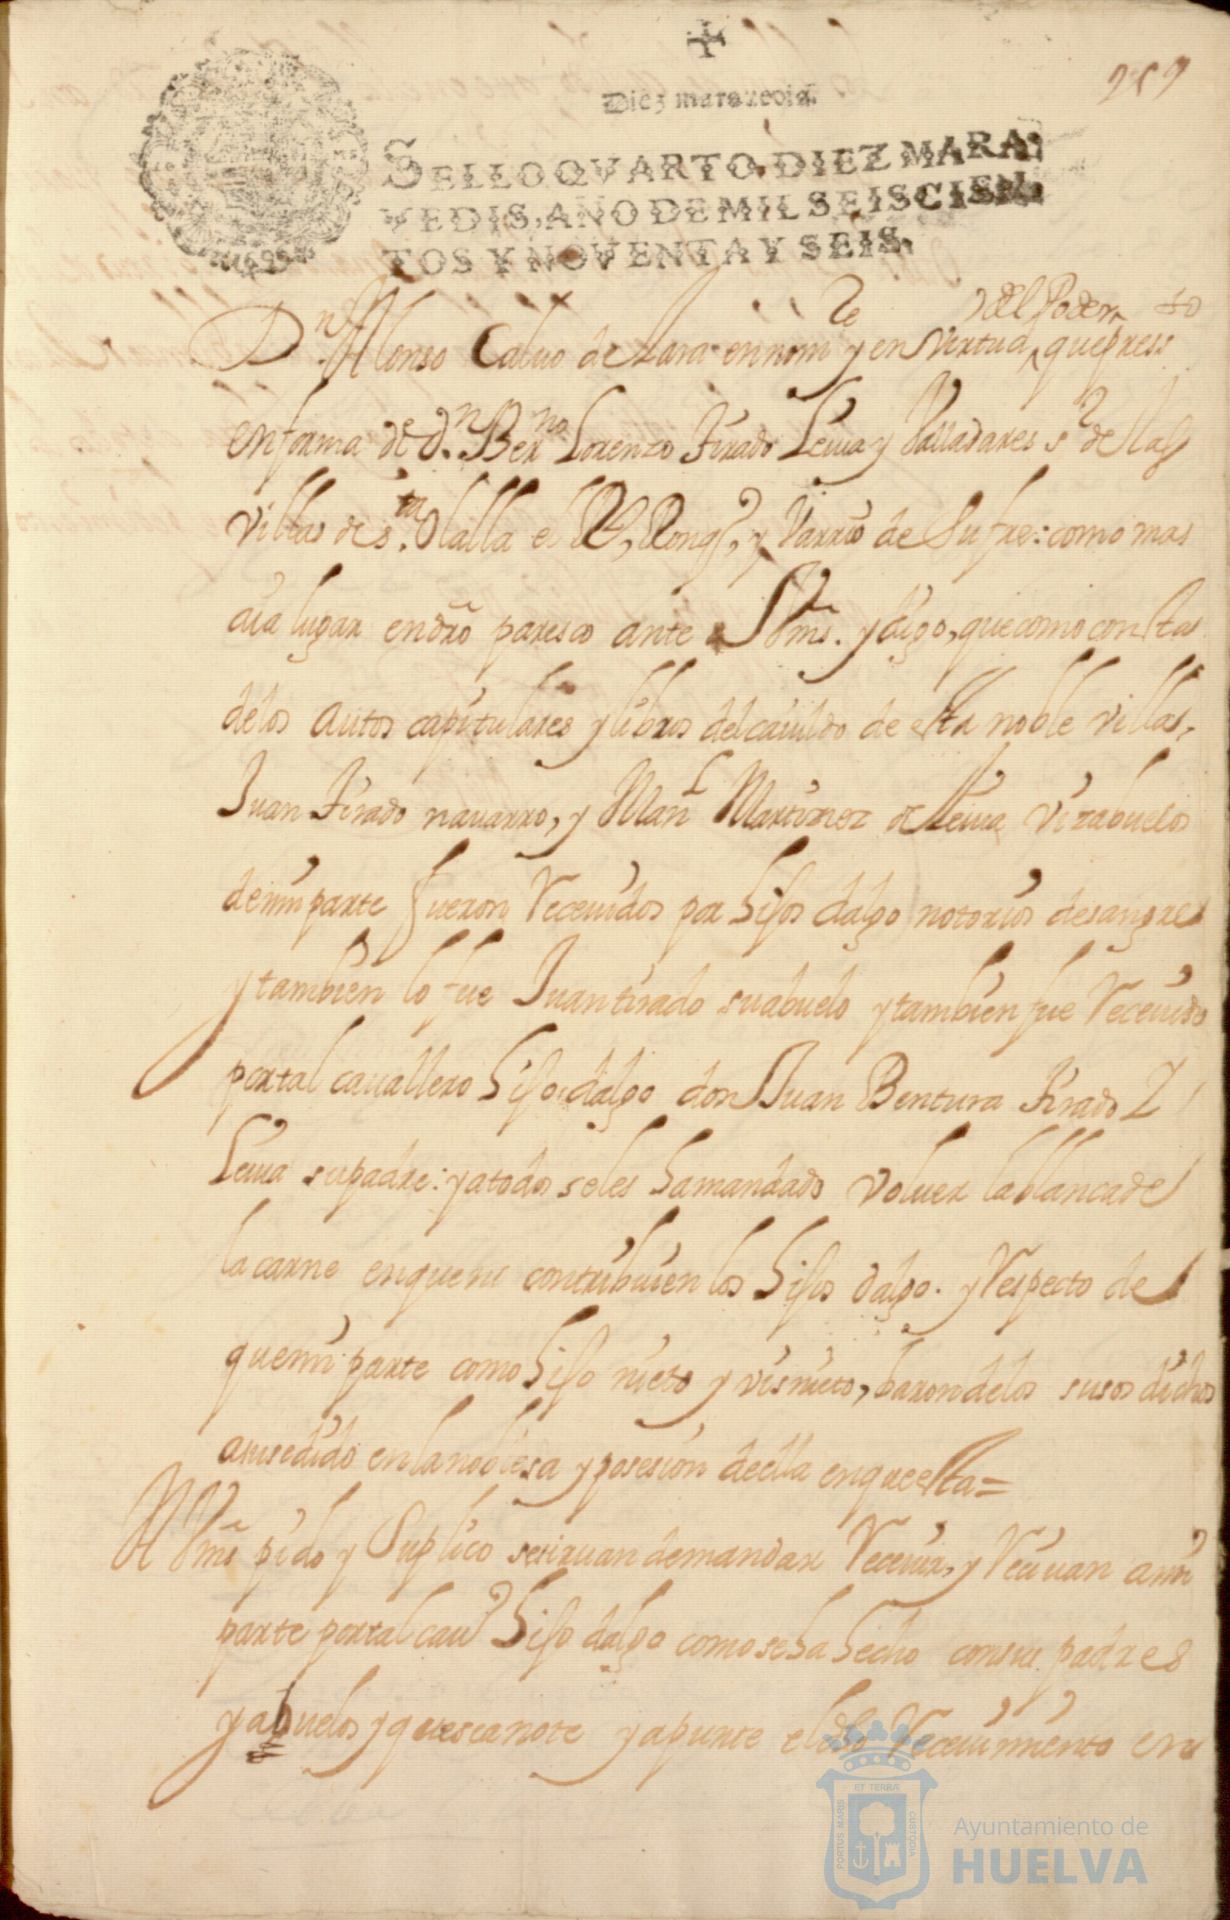 259
Diez maravedis.
SELLO QVARTO, DIEZ MARA:
VEDIS, AÑO DE MIL SEISCIEN
TOS Y NOVENTA Y SEIS.
del Poder
Dn. Alonso Calvo de Lara en nomre y en vertud, que press.to
en forma de dn. Berno. Lorenzo Tirado Leiua y Valladares sr. de las
villas de sta. Olalla el Rl, Ronqo, y Varrio de Sufre: como mas
aia lugar en dro paresco ante Vms. y digo, que como consta
de los autos capitulares y libros del cauildo de esta noble villa,
Juan Tirado nauarro, y Manl Martinez de Leiua visabuelos
de mi parte fueron Receuidos por hijos dalgo notorios de sangre
y tambien lo fue Juan tirado su abuelo y tambien fue Receuido
por tal cauallero hijo dalgo don Juan Bentura Tirado
Leiua su padre: y a todos se les ha mandado voluer la blanca de
la carne en que no contribuien los hijos dalgo. y Respecto de
que mi parte como hijo nieto y visnieto, baron de los susos dichos
a susedido en la noblesa y posesion de ella en que esta =
A Vms pido y suplico se siruan de mandar Receuir, y Reciuan a mi
parte por tal cauo hijo dalgo como se ha hecho con su padre
y abuelos y que se anote y apunte el dho Receuimiento en
ET TERRÆ
PORTUS MARIS
CUSTODIA
Ayuntamiento de
HUELVA